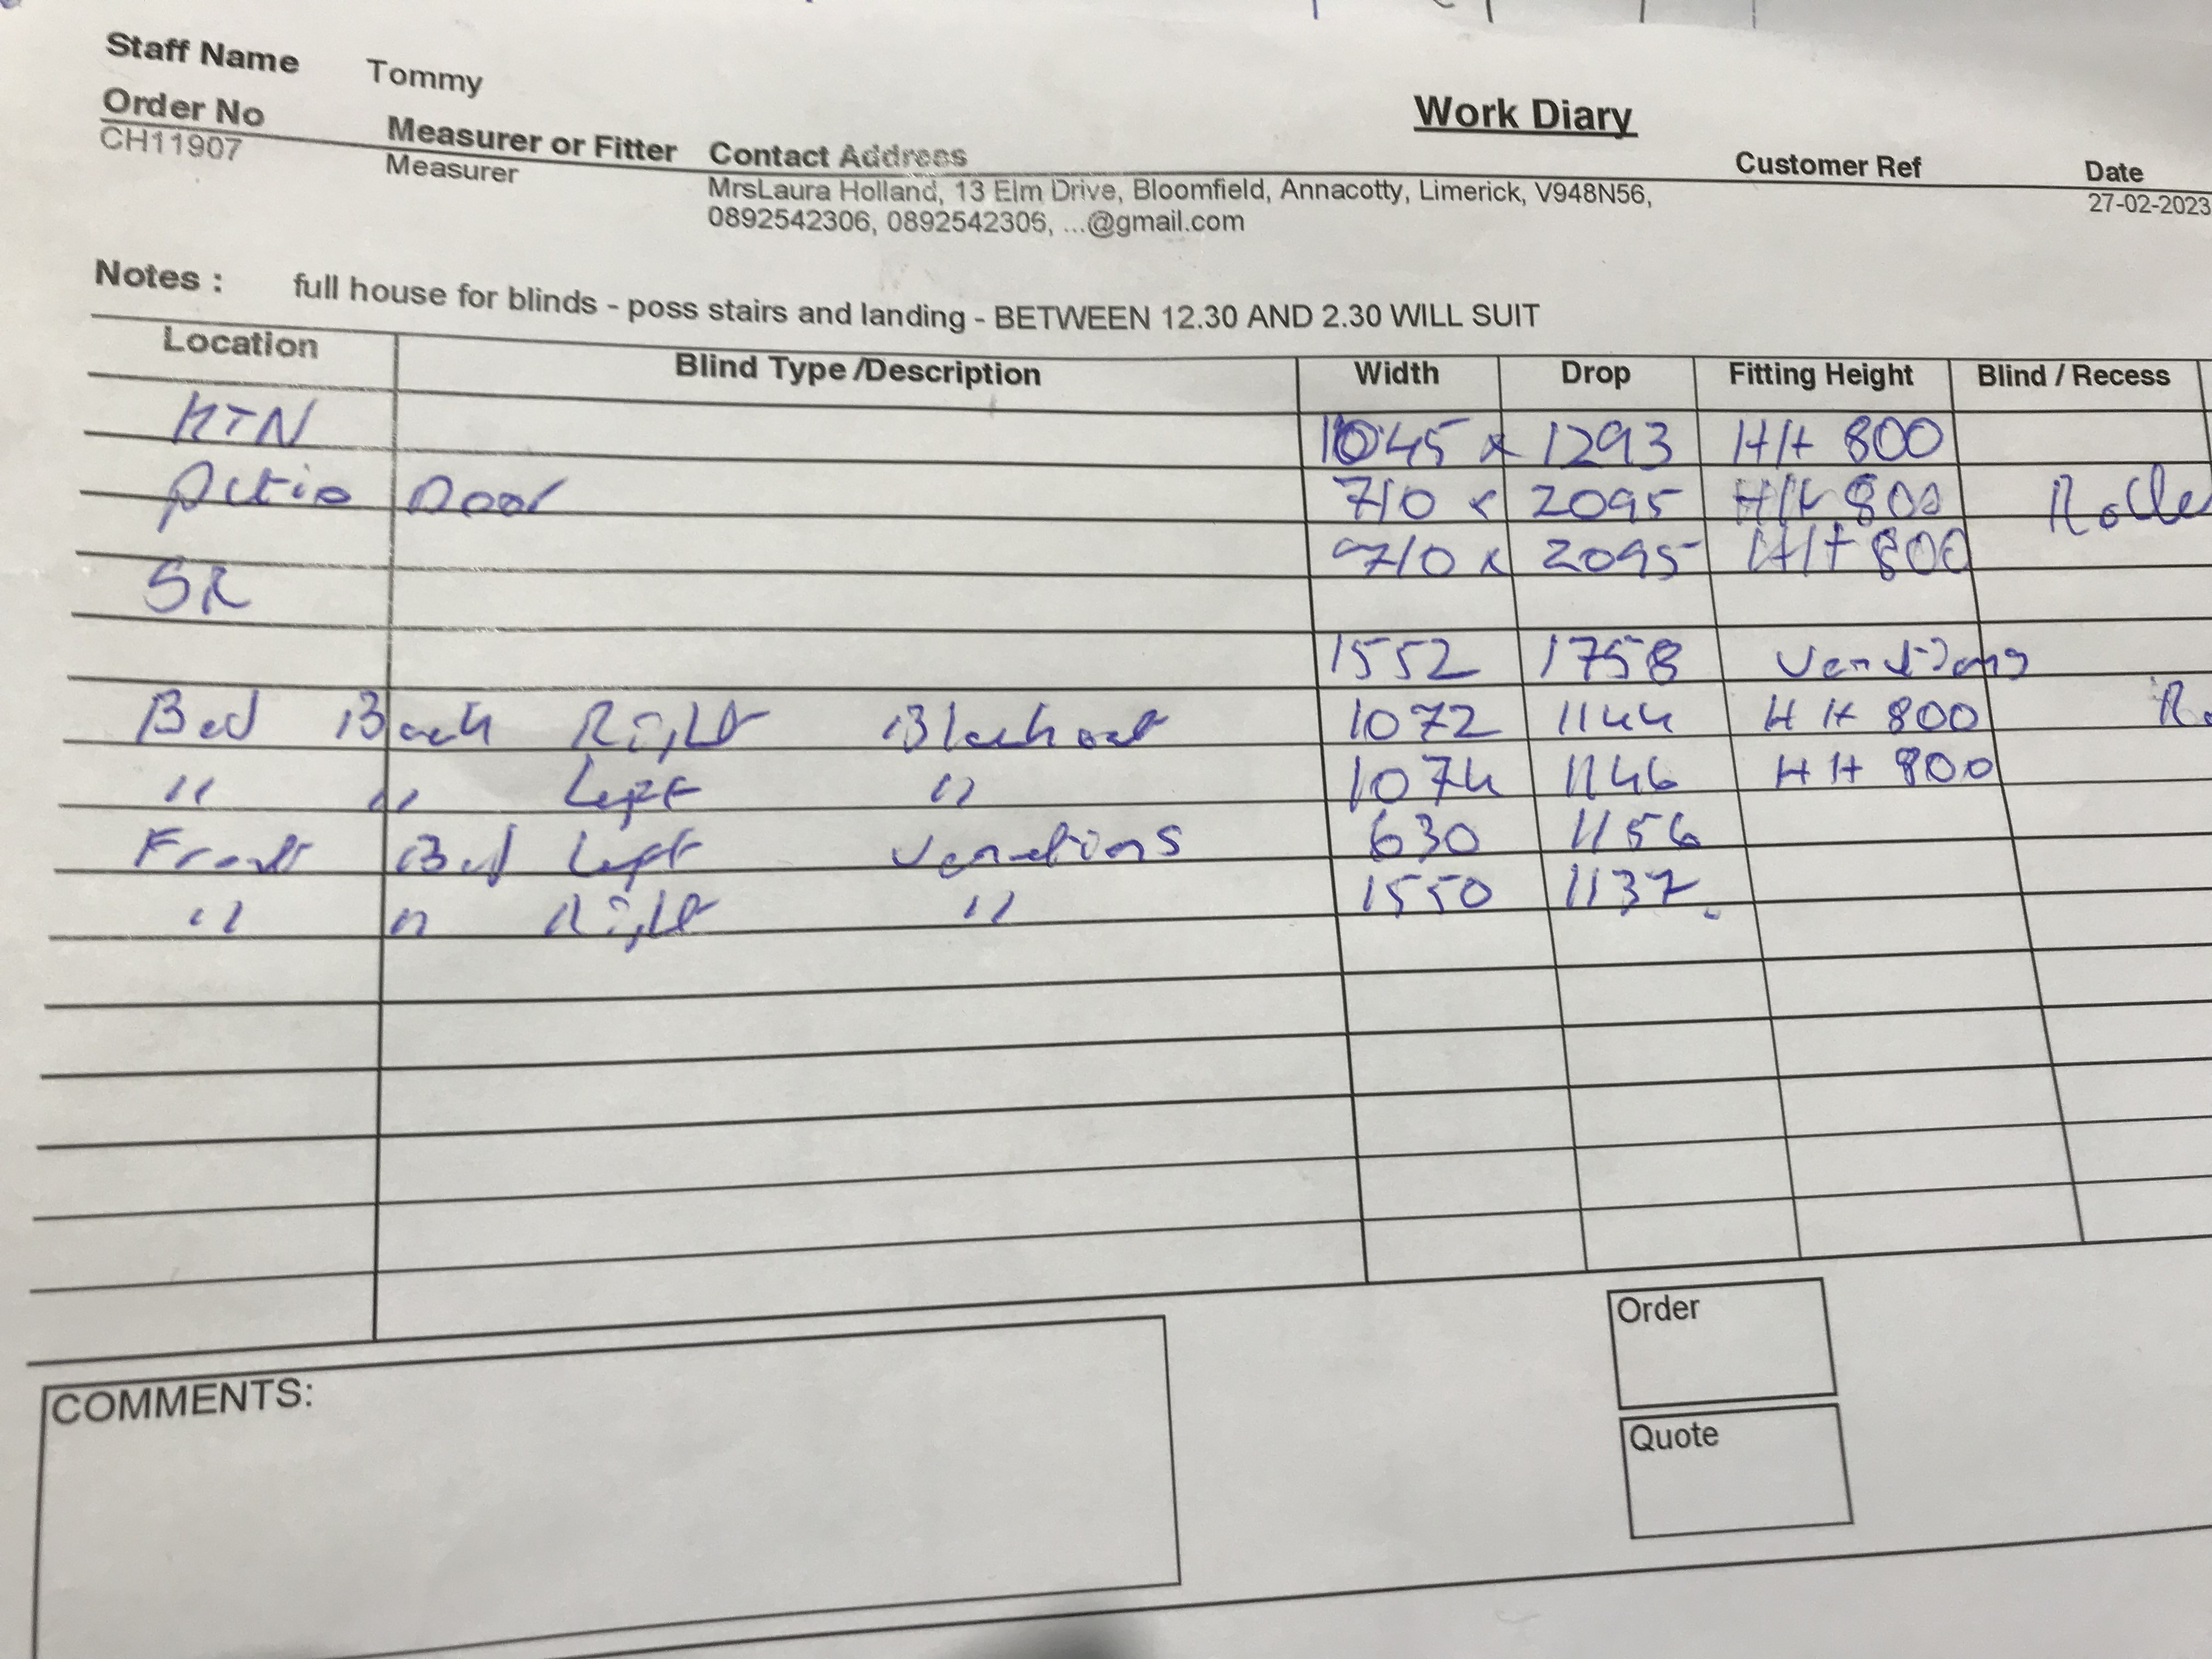 Staff Name Tommy
Work Diary
Order No Measurer or Fitter Contact Address Customer Ref Date
CH11907 Measurer MrsLaura Holland, 13 Elm Drive, Bloomfield, Annacotty, Limerick, V948N56, 27-02-2023
0892542306, 0892542306, ...@gmail.com
Notes : full house for blinds - poss stairs and landing - BETWEEN 12.30 AND 2.30 WILL SUIT
Location Blind Type /Description Width Drop Fitting Height Blind / Recess
KTN 1045 x 1293 HH 800
Patio Door 710 x 2095 HH 800 Rolle
710 x 2095 HH 800
SR
1552 1758 Venetians
Bed Back Right Blackout 1072 1144 HH 800 Ro
" " Left " 1074 1146 HH 800
Front Bed Left Venetians 630 1156
" " Right " 1550 1137
Order
COMMENTS:
Quote